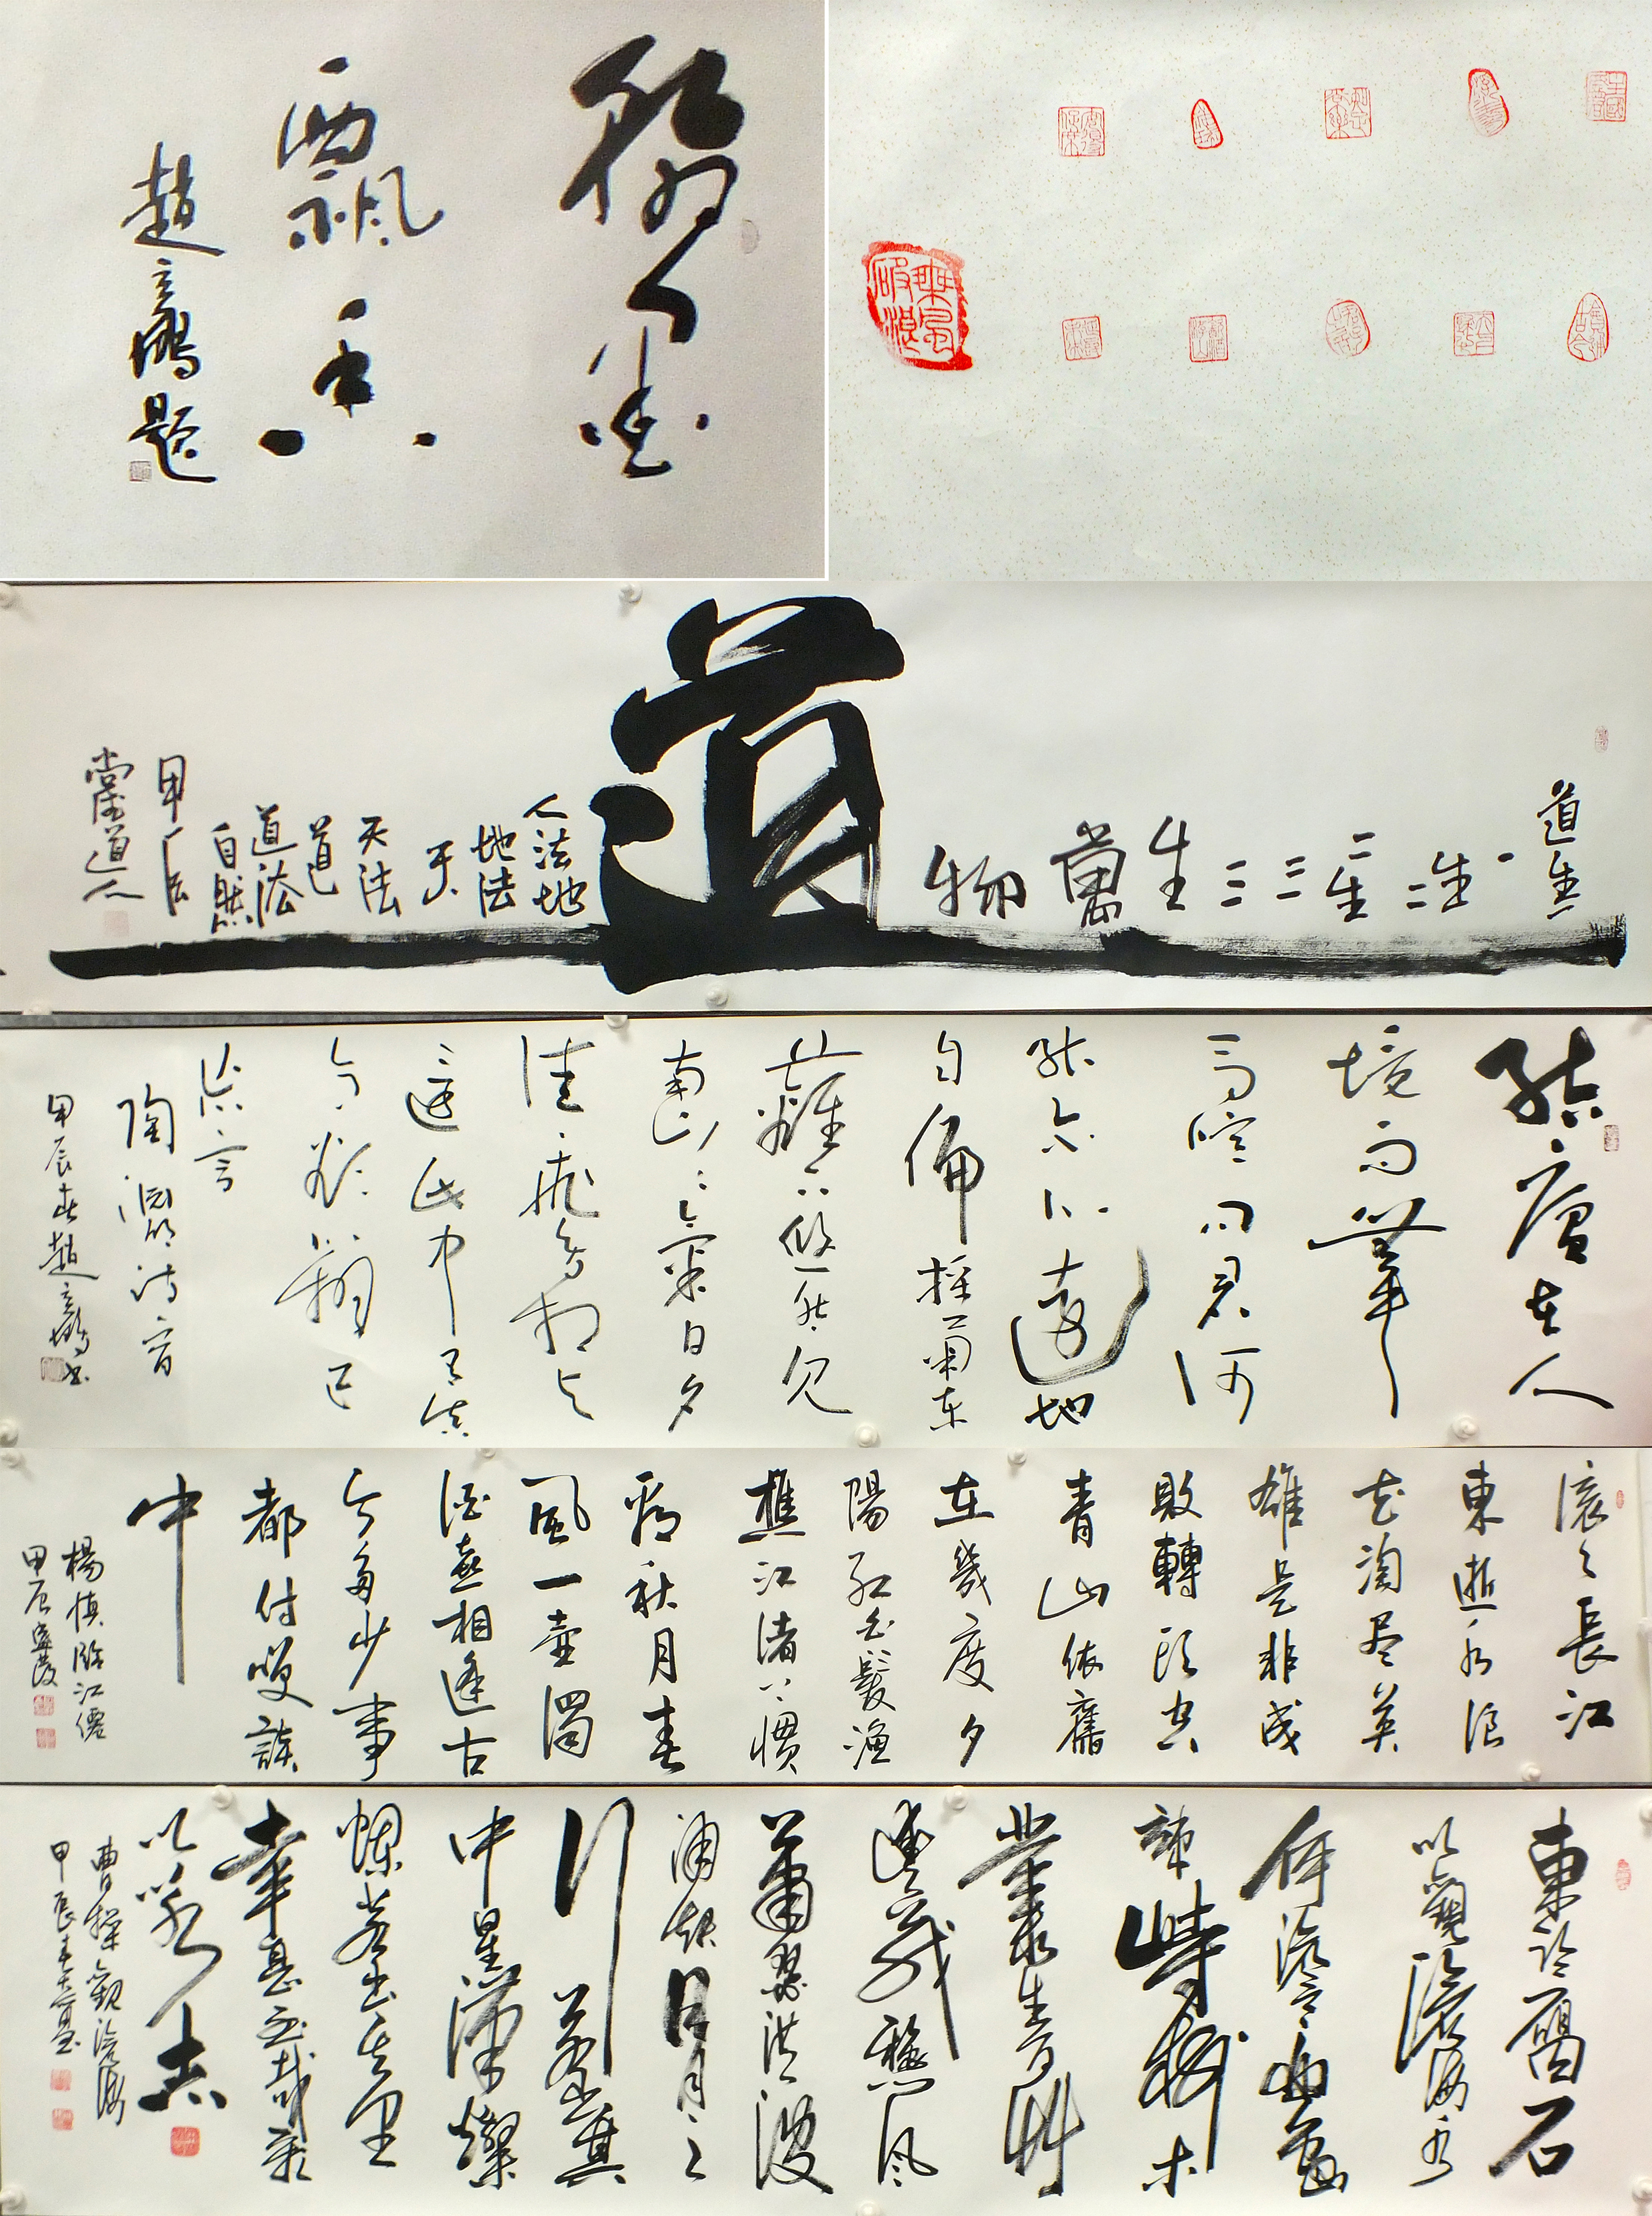 飄香
趙立鵬題
乘風破浪
道生一
一
生二
二生
三
三
生
萬
物
道
人法地
地法
天
天法
道
道法
自然
甲辰
道人
结廬在人
境而無車
馬喧問君何
能尔心遠地
自偏採菊東
籬下悠然見
南山山氣日夕
佳飛鳥相與
還此中有真
意欲辨已
忘言
陶淵明詩一首
甲辰春趙立鵬書
滚滚長江
東逝水浪
花淘尽英
雄是非成
敗轉頭空
青山依舊
在幾度夕
陽紅白髮漁
樵江渚上慣
看秋月春
風一壺濁
酒喜相逢古
今多少事
都付笑談
中
楊慎臨江僊
甲辰
東臨碣石
以觀滄海水
何澹澹山島
竦峙樹木
叢生百草
豐茂秋風
蕭瑟洪波
涌起日月之
行若出其
中星漢燦
爛若出其里
幸甚至哉歌
以詠志
曹操觀滄海
甲辰春